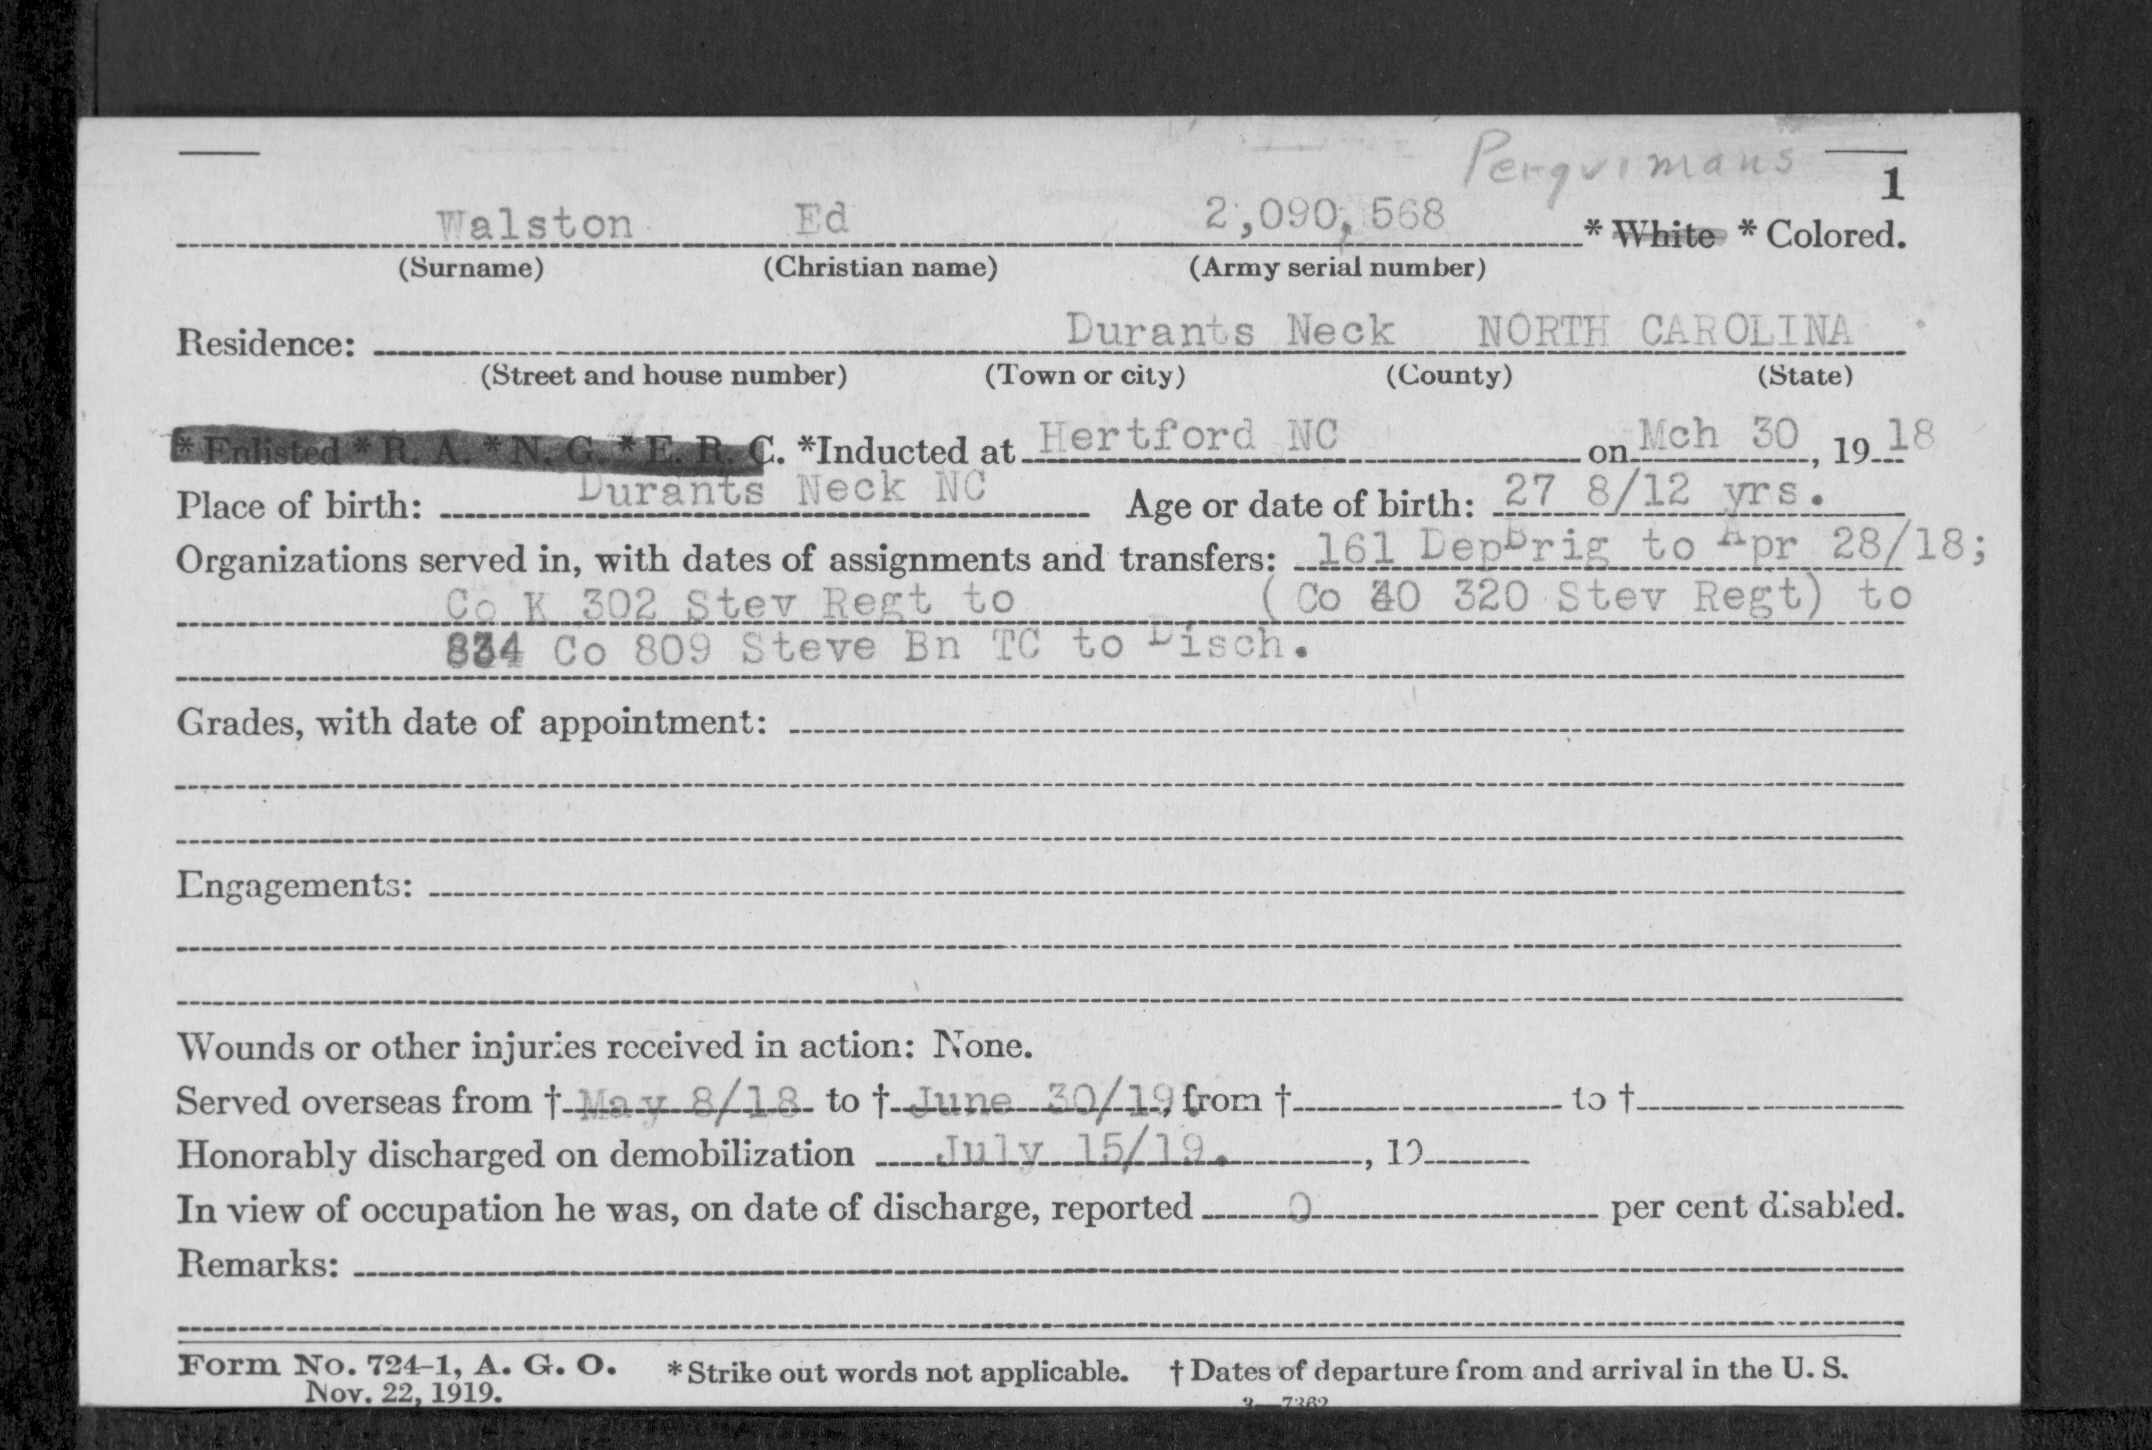 Perquimans
1
Walston Ed 2,090,568 * White * Colored.
(Surname) (Christian name) (Army serial number)
Residence: Durants Neck NORTH CAROLINA
(Street and house number) (Town or city) (County) (State)
* Enlisted * R. A. * N. G. * E. R. C. *Inducted at Hertford NC on Mch 30, 1918
Place of birth: Durants Neck NC Age or date of birth: 27 8/12 yrs.
Organizations served in, with dates of assignments and transfers: 161 DepBrig to Apr 28/18;
Co K 302 Stev Regt to (Co 320 Stev Regt) to
834 Co 809 Steve Bn TC to Disch.
Grades, with date of appointment:
Engagements:
Wounds or other injuries received in action: None.
Served overseas from † May 8/18 to † June 30/19, from † to †
Honorably discharged on demobilization July 15/19. , 19
In view of occupation he was, on date of discharge, reported 0 per cent disabled.
Remarks:
Form No. 724-1, A. G. O. * Strike out words not applicable. † Dates of departure from and arrival in the U. S.
Nov. 22, 1919.
3—7362